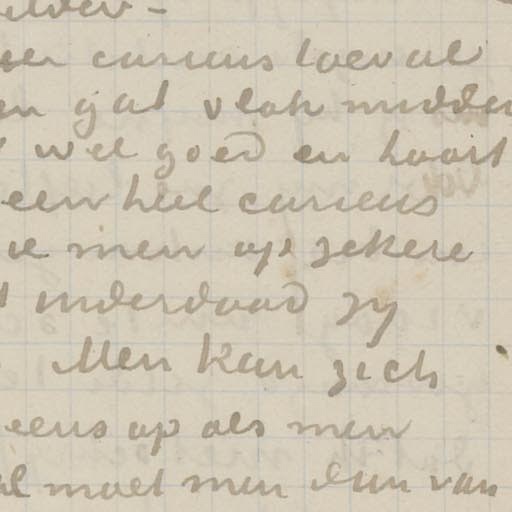 een curieus toeval
en gat vlak midden
wel goed en hoort
een heel curieus
men op zekere
inderdaad zy
Men kan zich
eens op als men
moet men dun van